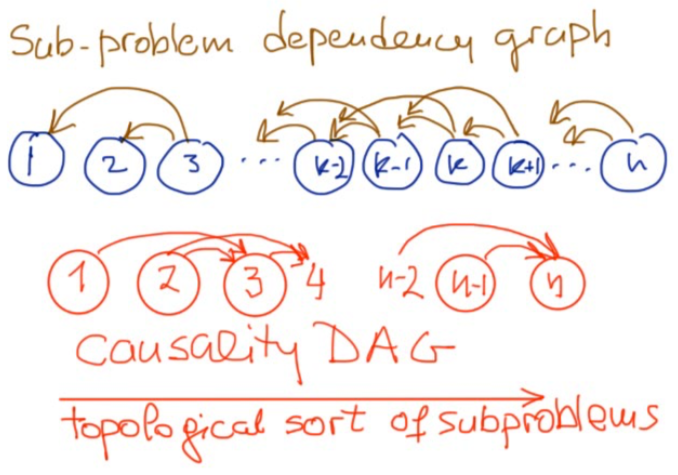 Sub-problem dependency graph
1 2 3 ... k-2 k-1 k k+1 ... n
1 2 3 4 n-2 n-1 n
Causality DAG
topological sort of subproblems